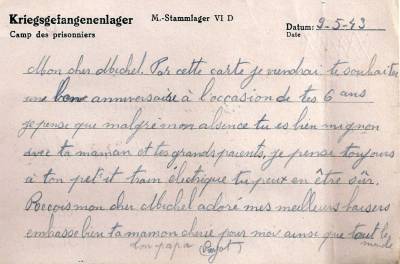 Kriegsgefangenenlager M.-Stammlager VI D Datum: 9-5-43
Camp des prisonniers Date
Mon cher Michel. Par cette carte je viendrai te souhaiter
une bone anniversaire à l'occasion de tes 6 ans
je pense que malgré mon absence tu es bien mignon
avec ta maman et tes grands parents, je pense toujours
à ton petit train électrique tu peux en être sûr.
Recois mon cher Michel adoré mes meilleurs baisers
embasse bien ta maman cherie pour moi ainsi que tout le
monde
ton papa